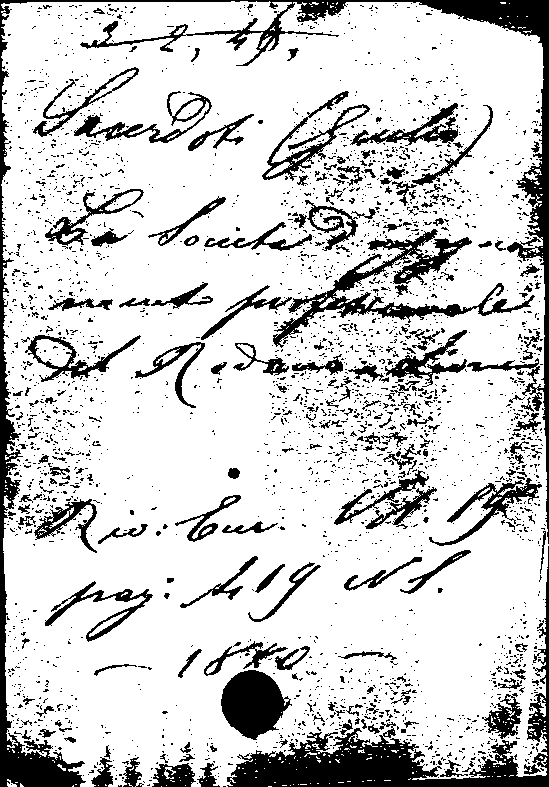 3. 2, 4
Sacerdoti (Giulio)
La Società D'insegna
mento professionale
del Rodano a Lione
Riv: Eur. Vol. 19°
pag: 419 N S.
— 1880 —